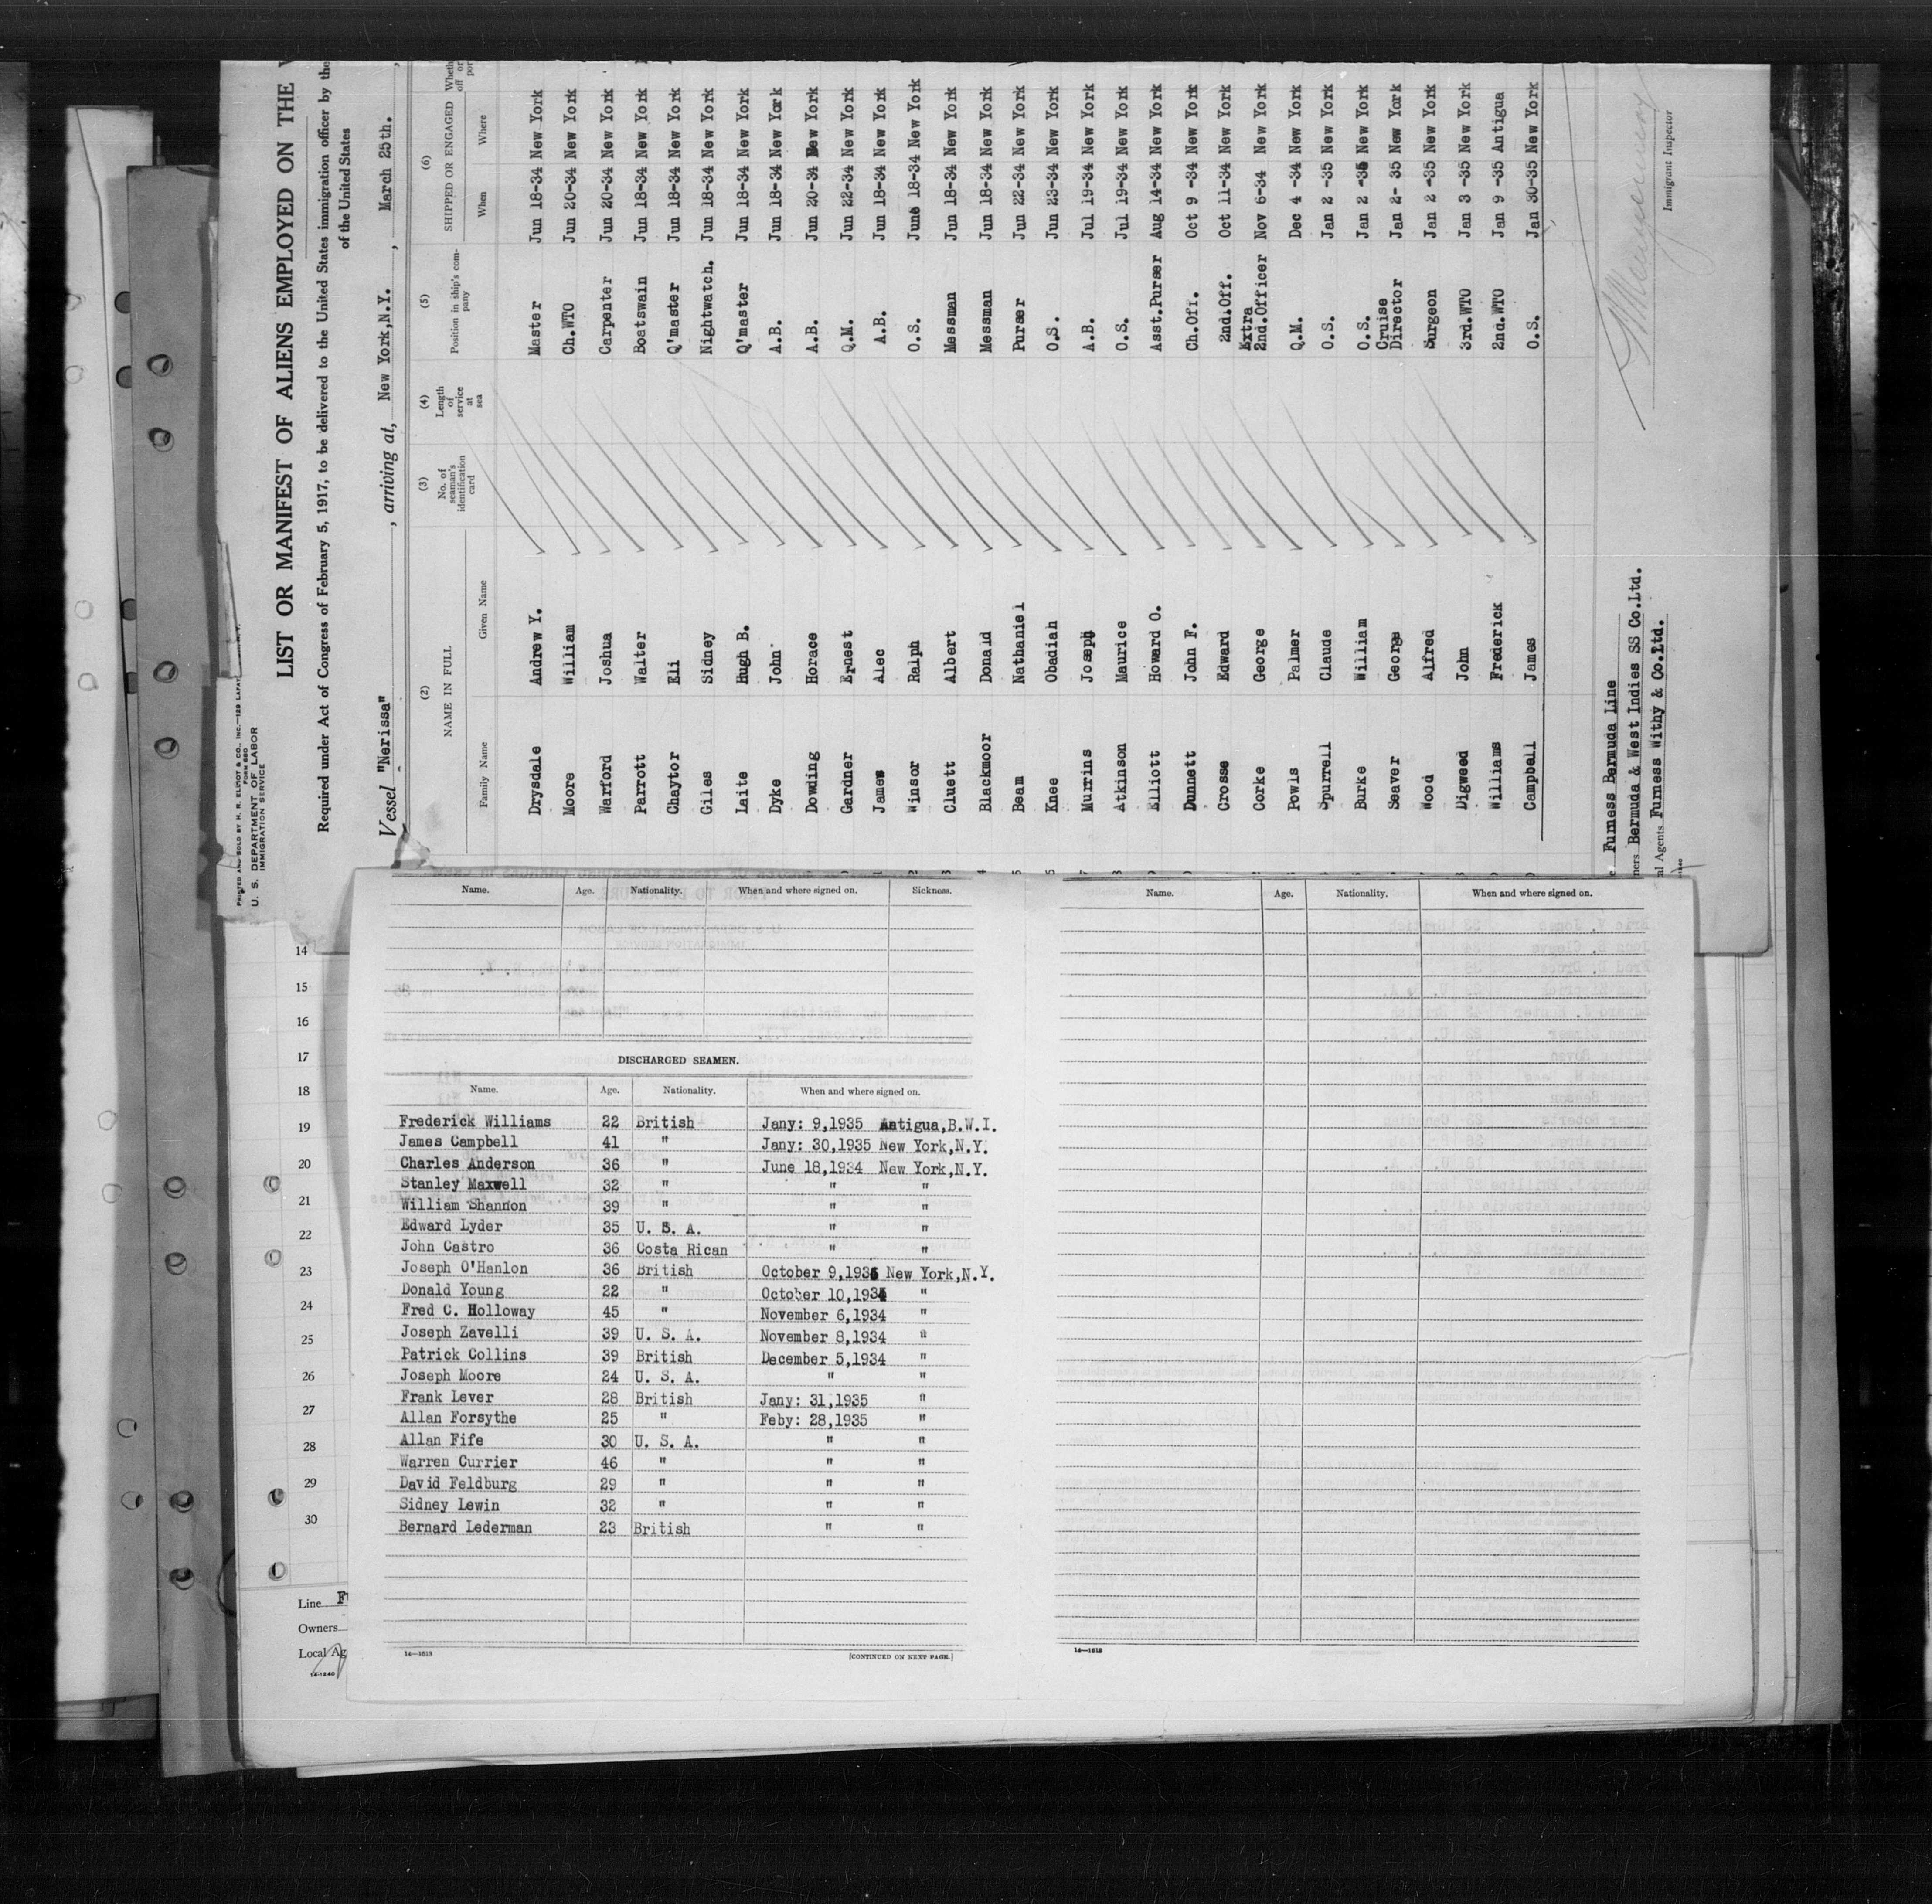 PRINTED AND SOLD BY H. R. ELLIOT & CO., INC.—129
FORM 680
U. S. DEPARTMENT OF LABOR
IMMIGRATION SERVICE
LIST OR MANIFEST OF ALIENS EMPLOYED ON THE
Required under Act of Congress of February 5, 1917, to be delivered to the United States immigration officer by the
of the United States
Vessel "Nerissa" , arriving at, New York,N.Y. , March 25th. ,
(2) (3) (4) (5) (6)
NAME IN FULL No. of seaman's identification card Length of service at sea Position in ship's company SHIPPED OR ENGAGED
Family Name Given Name When Where
Drysdale Andrew Y. Master Jun 18-34 New York
Moore William Ch.WTO Jun 20-34 New York
Warford Joshua Carpenter Jun 20-34 New York
Parrott Walter Boatswain Jun 18-34 New York
Chaytor Eli Q'master Jun 18-34 New York
Giles Sidney Nightwatch. Jun 18-34 New York
Laite Hugh B. Q'master Jun 18-34 New York
Dyke John A.B. Jun 18-34 New York
Dowding Horace A.B. Jun 20-34 New York
Gardner Ernest Q.M. Jun 22-34 New York
James Alec A.B. Jun 18-34 New York
Winsor Ralph O.S. June 18-34 New York
Cluett Albert Messman Jun 18-34 New York
Blackmoor Donald Messman Jun 18-34 New York
Beam Nathaniel Purser Jun 22-34 New York
Knee Obadiah O.S. Jun 23-34 New York
Murrins Joseph A.B. Jul 19-34 New York
Atkinson Maurice O.S. Jul 19-34 New York
Elliott Howard O. Asst.Purser Aug 14-34 New York
Dunnett John F. Ch.Off. Oct 9 -34 New York
Crosse Edward 2nd.Off. Oct 11-34 New York
Corke George Extra 2nd.Officer Nov 6-34 New York
Powls Palmer Q.M. Dec 4 -34 New York
Spurrell Claude O.S. Jan 2 -35 New York
Burke William O.S. Jan 2 -35 New York
Seaver George Cruise Director Jan 2- 35 New York
Wood Alfred Surgeon Jan 2 -35 New York
Digweed John 3rd.WTO Jan 3 -35 New York
Williams Frederick 2nd.WTO Jan 9 -35 Antigua
Campbell James O.S. Jan 30-35 New York
Furness Bermuda Line
Bermuda & West Indies SS Co.Ltd.
Agents Furness Withy & Co.Ltd.
Immigrant Inspector
Name. Age. Nationality. When and where signed on. Sickness.
DISCHARGED SEAMEN.
Name. Age. Nationality. When and where signed on.
Frederick Williams 22 British Jany: 9,1935 Antigua,B.W.I.
James Campbell 41 " Jany: 30,1935 New York,N.Y.
Charles Anderson 36 " June 18,1934 New York,N.Y.
Stanley Maxwell 32 " " "
William Shannon 39 " " "
Edward Lyder 35 U. S. A. " "
John Castro 36 Costa Rican " "
Joseph O'Hanlon 36 British October 9,1934 New York,N.Y.
Donald Young 22 " October 10,1934 "
Fred C. Holloway 45 " November 6,1934 "
Joseph Zavelli 39 U. S. A. November 8,1934 "
Patrick Collins 39 British December 5,1934 "
Joseph Moore 24 U. S. A. " "
Frank Lever 28 British Jany: 31,1935 "
Allan Forsythe 25 " Feby: 28,1935 "
Allan Fife 30 U. S. A. " "
Warren Currier 46 " " "
David Feldburg 29 " " "
Sidney Lewin 32 " " "
Bernard Lederman 23 British " "
14—1613
[CONTINUED ON NEXT PAGE.]
Name. Age. Nationality. When and where signed on.
14—1613
14
15
16
17
18
19
20
21
22
23
24
25
26
27
28
29
30
Line
Owners
Local Ag
14-1240